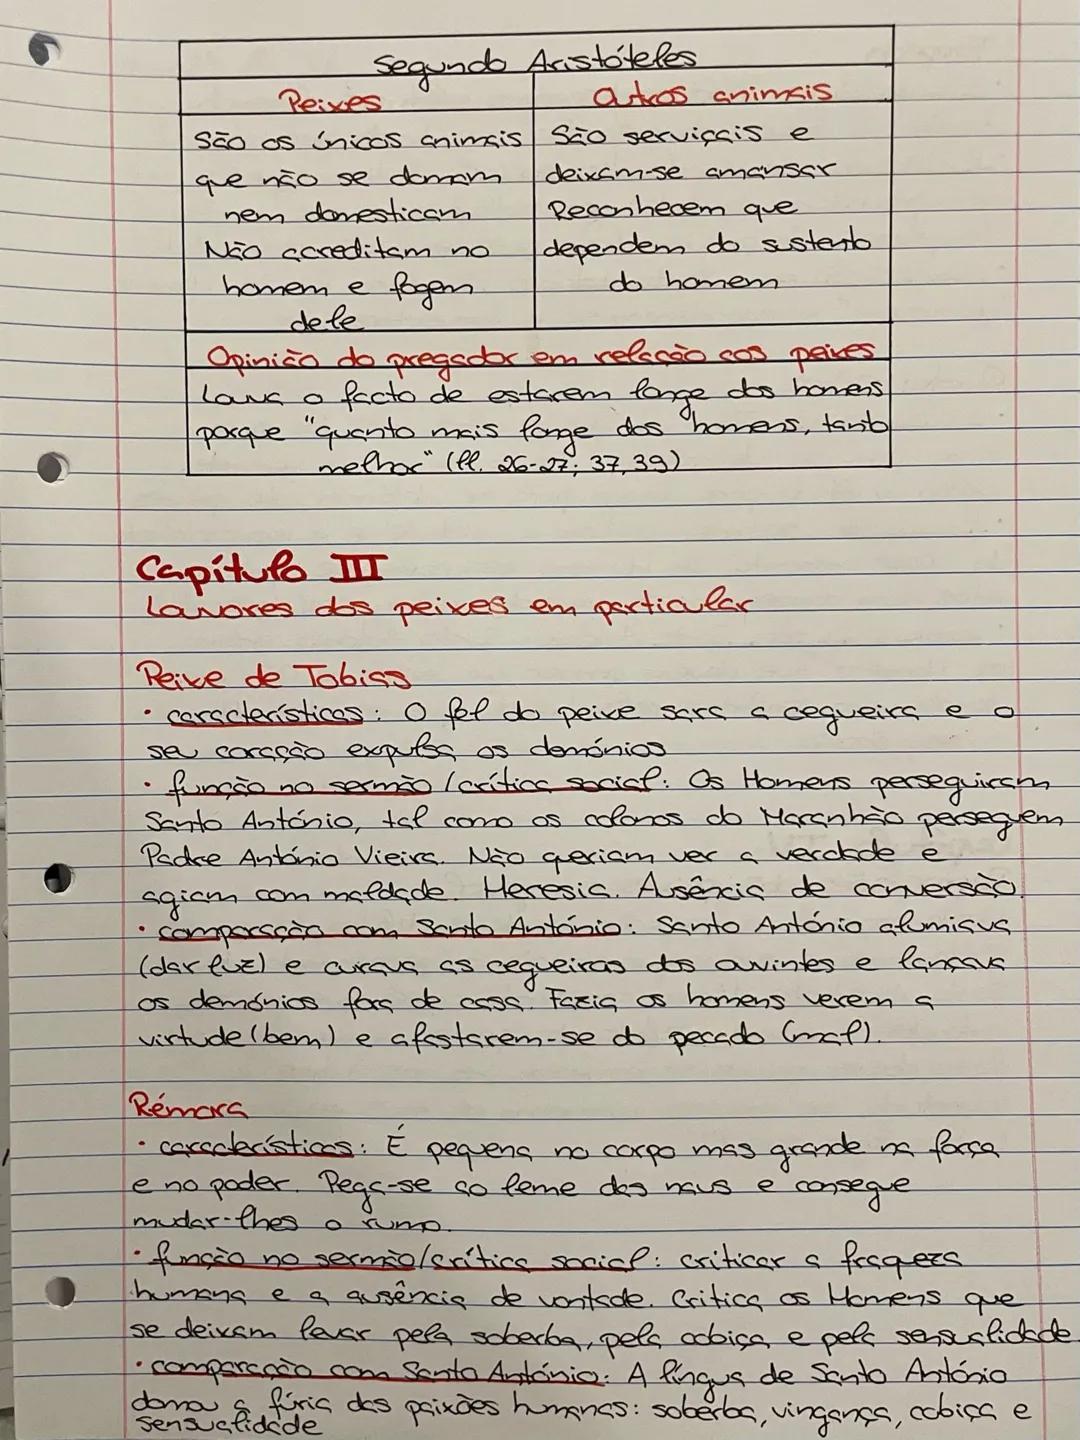 Segundo Aristóteles
Peixes
Outros animais
São os únicos animais
que não se domam
nem domesticam
Não acreditam no
homem e fogem
dele
São serviçais e
deixam-se amansar
Reconhecem que
dependem do sustento
do homem
Opinião do pregador em relação aos peixes
Louva o facto de estarem longe dos homens
porque "quanto mais longe dos homens, tanto
melhor" (ll. 26-27; 37, 39)
Capítulo III
Louvores dos peixes em particular
Peixe de Tobias
· características: O fel do peixe sara a cegueira e o
seu coração expulsa os demónios
· função no sermão/crítica social: Os Homens perseguiram
Santo António, tal como os colonos do Maranhão perseguem
Padre António Vieira. Não queriam ver a verdade e
agiam com maldade. Heresia. Ausência de conversão.
· comparação com Santo António: Santo António alumiava
(dar luz) e curava as cegueiras dos ouvintes e lançava
os demónios fora de casa. Fazia os homens verem a
virtude (bem) e afastarem-se do pecado (mal).
Rémora
· características: É pequena no corpo mas grande na força
e no poder. Pega-se ao leme das naus e consegue
mudar-lhes o rumo.
· função no sermão/crítica social: criticar a fraqueza
humana e a ausência de vontade. Critica os Homens que
se deixam levar pela soberba, pela cobiça e pela sensualidade
· comparação com Santo António: A língua de Santo António
domou a fúria das paixões humanas: soberba, vingança, cobiça e
sensualidade